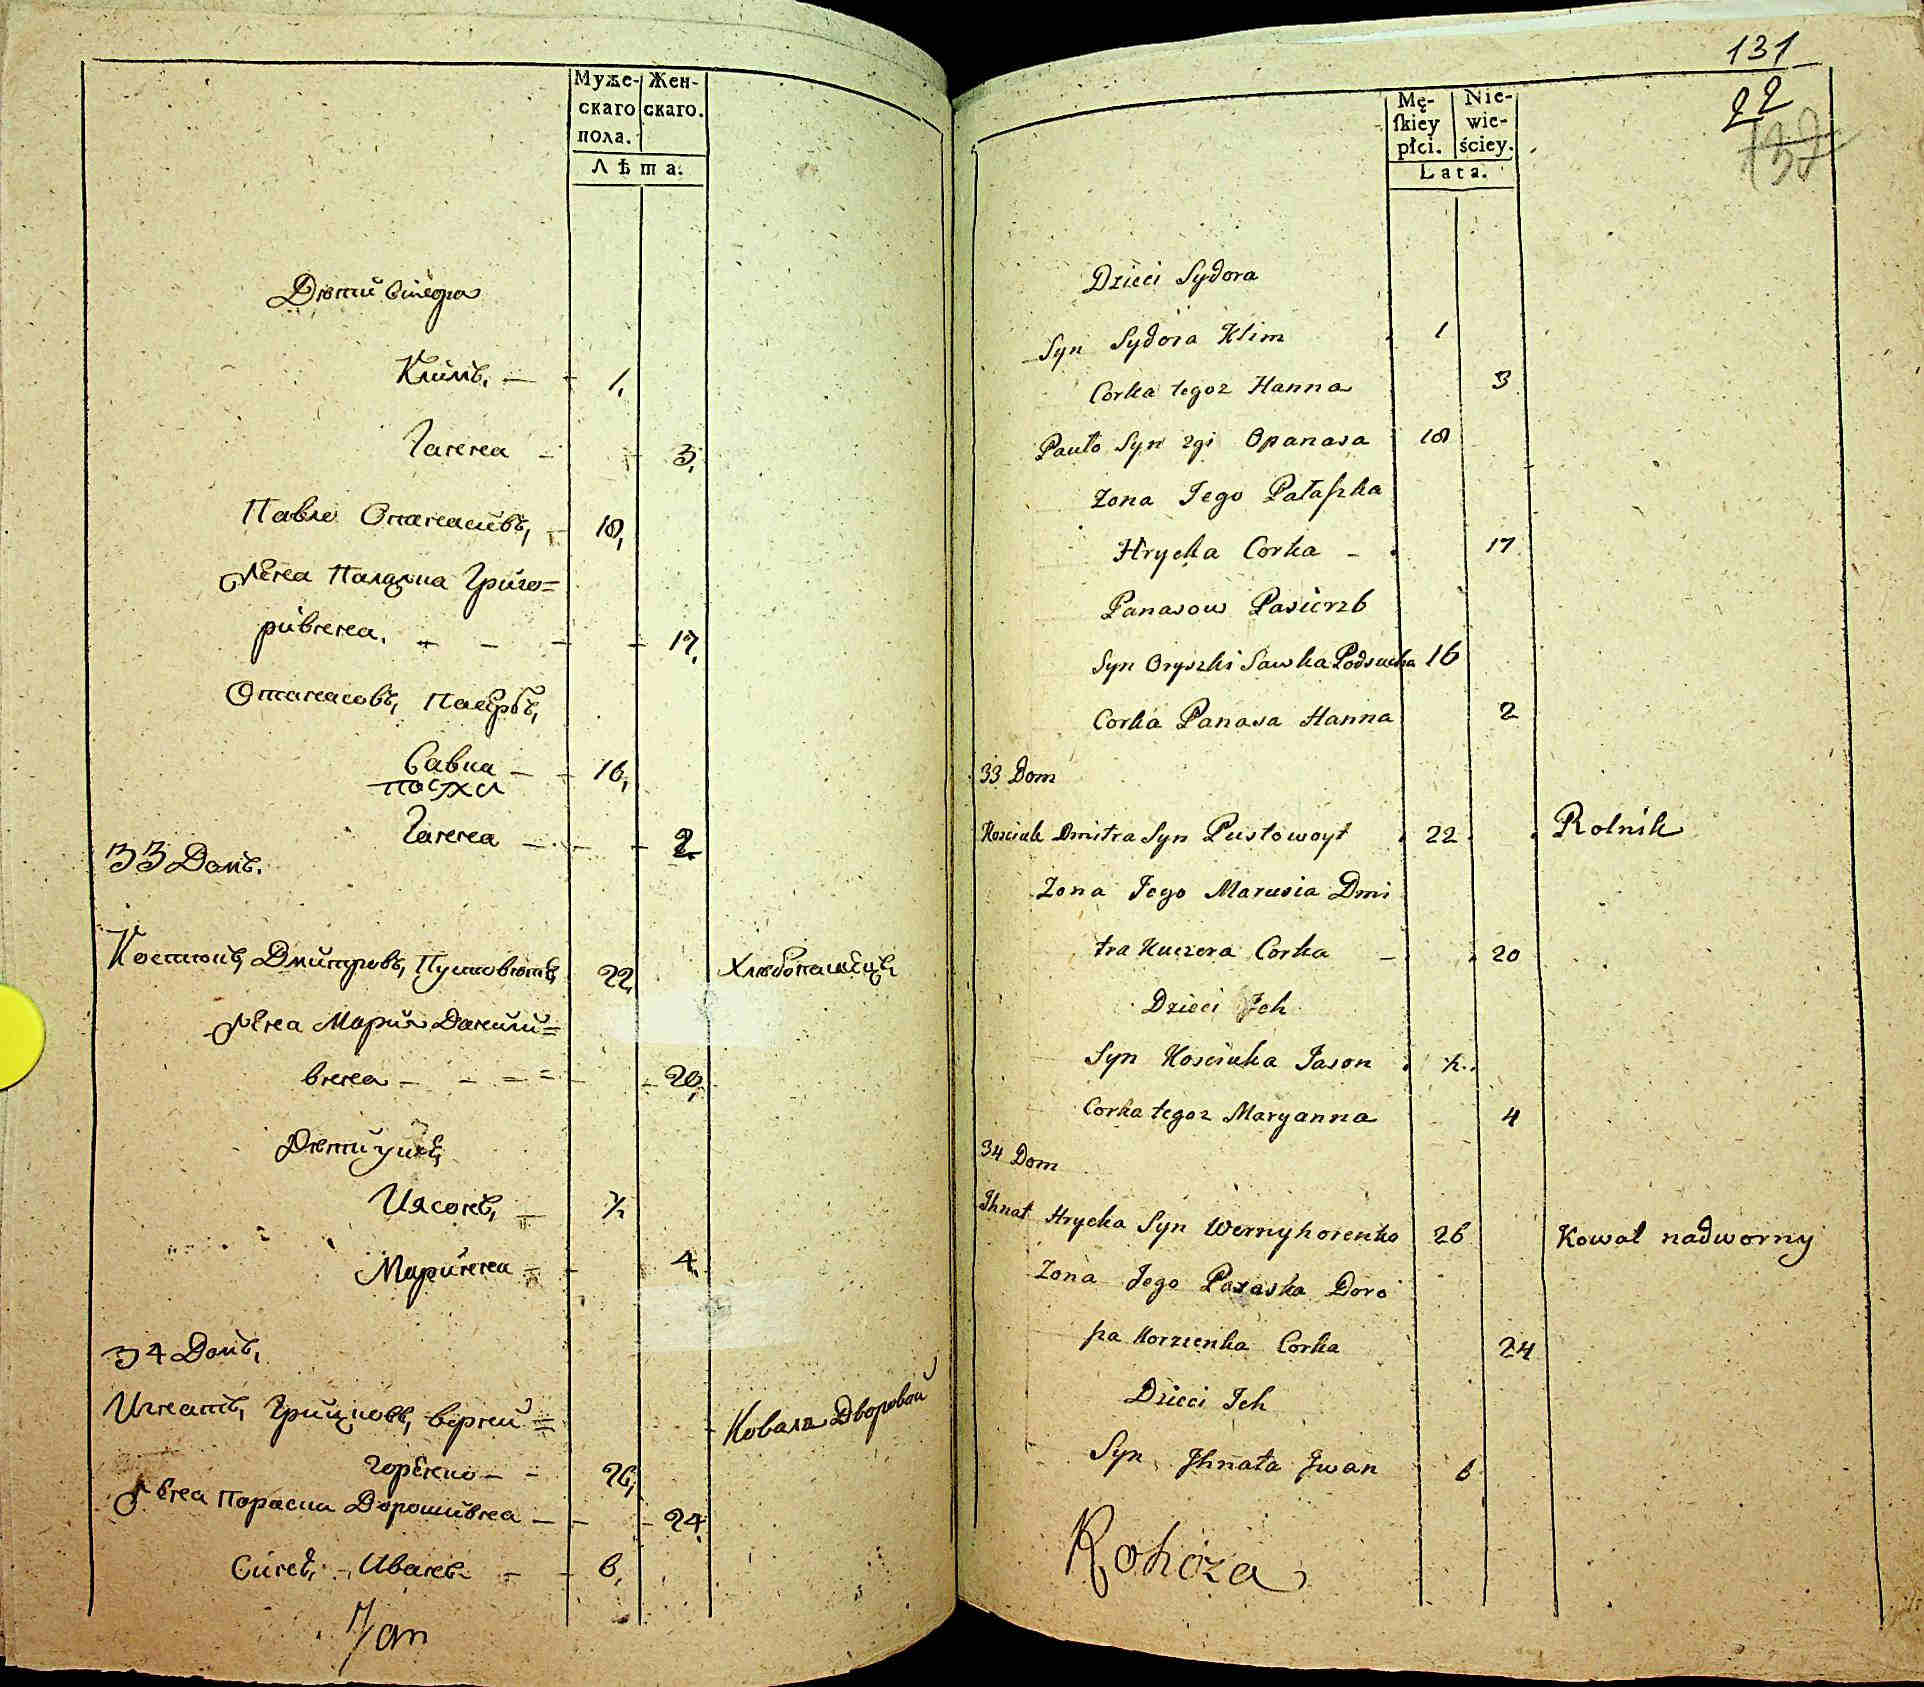 Муже-
скаго
пола.
Жен-
скаго.
Лѣта.
Дѣти Сидора
Климъ, 1,
Ганна 3,
Павло Опанасивъ, 18,
Жена Палажка Григо=
ривнна. 17,
Опанасовъ, Пасербъ,
Савка 16,
Ганна 2
33 Домъ.
Костюкъ Дмитровъ, Пустовойтъ 22, Хлѣбопашецъ
Жена Мария Данили=
внна 20,
Дѣти у ихъ
Иясонъ, ½
Мариянна 4,
34 Домъ,
Игнатъ, Грицковъ, Верни=
горенко 26, Коваль Дворовой
Жена Параска Дорошивна 24,
Синъ, Иванъ 6,
Jan
131
22
137
Mę-
ſkiey
płci.
Nie-
wie-
ściey.
Lata.
Dzieci Sydora
Syn Sydora Klim 1
Corka tegoz Hanna 3
Pauło Syn zgi Opanasa 18
Zona Jego Pałaszka
Hrycka Corka 17
Panasow Pasierzb
Syn Oryszki Sawka Podsucha 16
Corka Panasa Hanna 2
33 Dom
Kosciuk Dmitra Syn Pustowoyt 22 Rolnik
Zona Jego Marusia Dmi
tra Kuczera Corka 20
Dzieci Ich
Syn Kosciuka Jason ½
Corka tegoz Maryanna 4
34 Dom
Ihnat Hrycka Syn Wernyhorenko 26 Kowal nadworny
Zona Jego Paraska Doro
sza Korzienka Corka 24
Dzieci Ich
Syn Ihnata Iwan 6
Rohoza